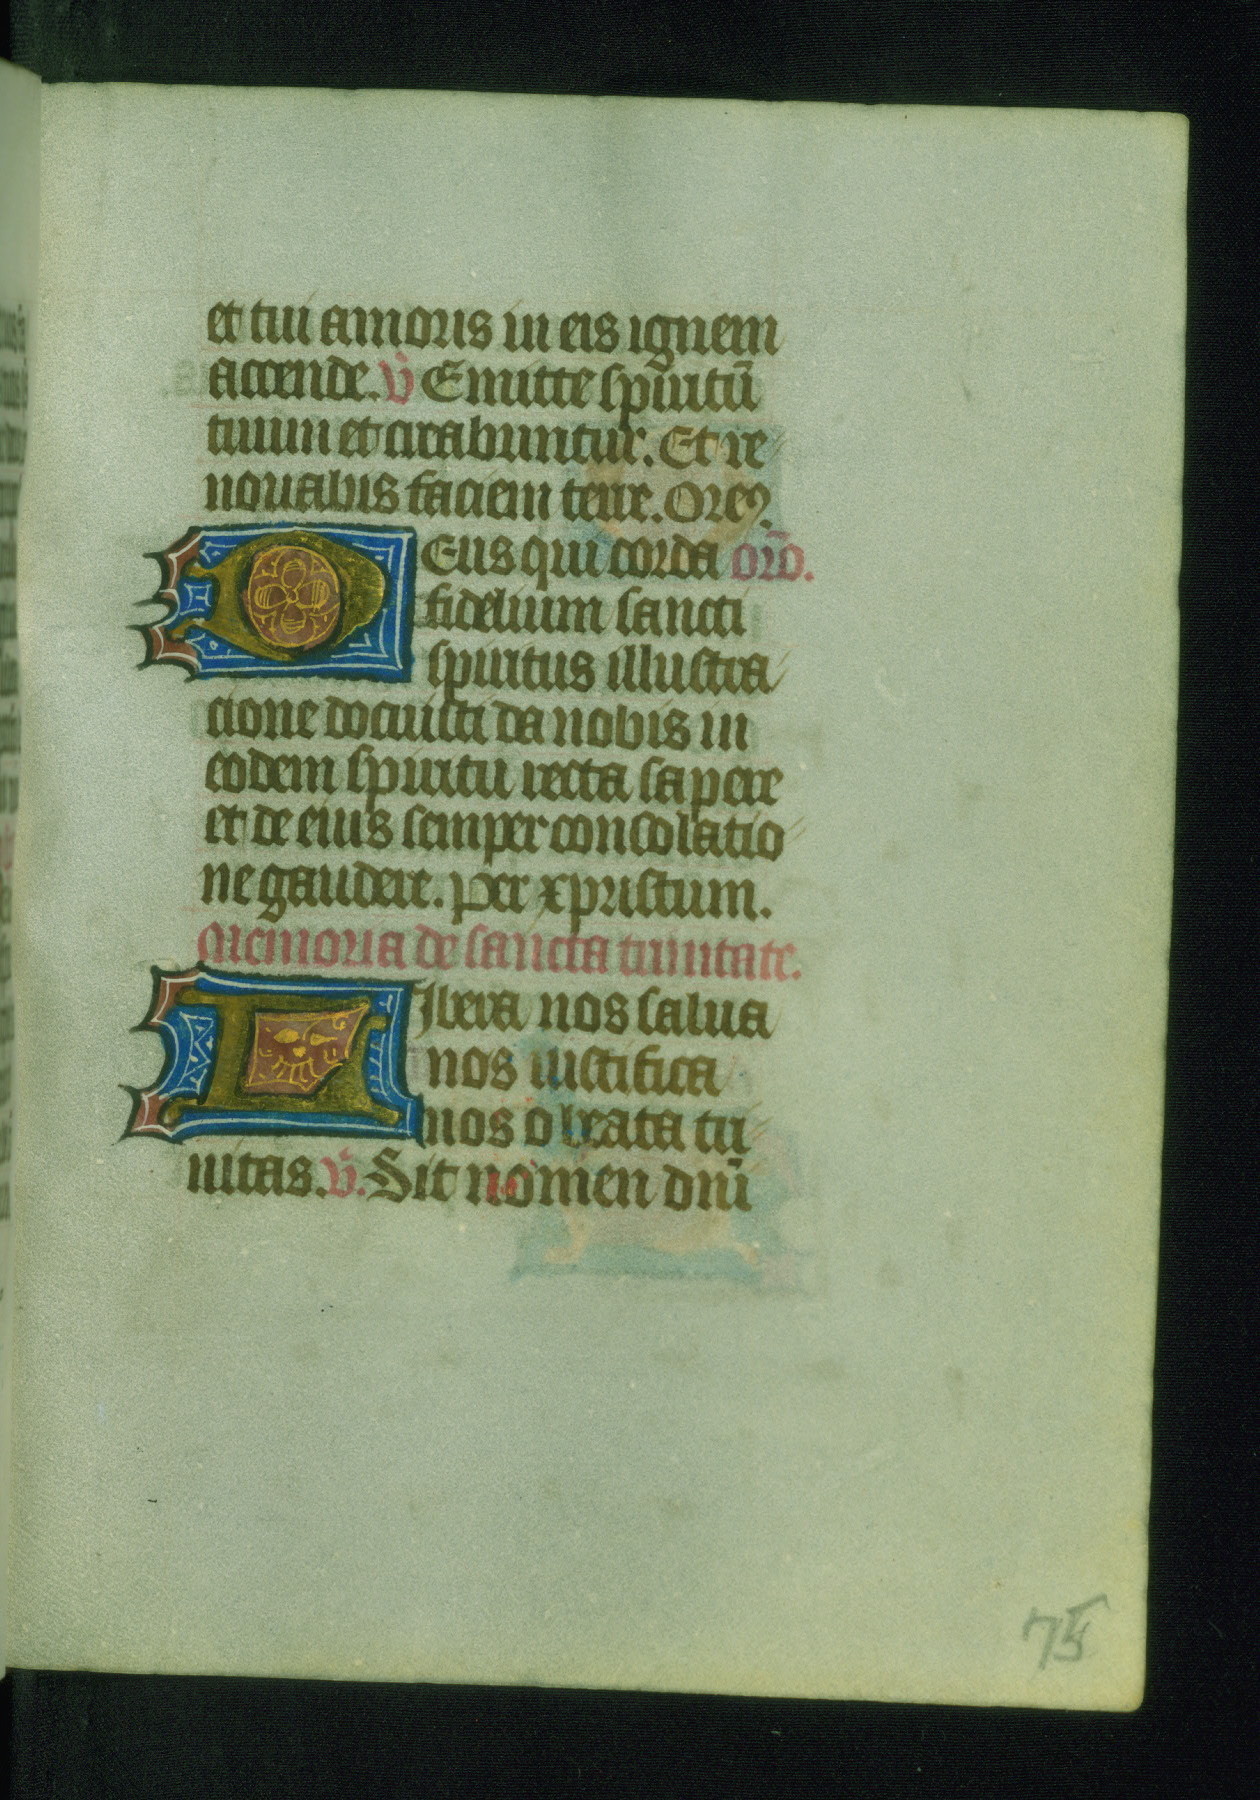 et tui amoris in eis ignem
accende. v̄ Emitte spiritū
tuum et crabuntur. Et re
nouabis faciem terre. Oreꝰ.
DEus qui corda orō.
fidelium sancti
spiritus illustra
cione docuisti da nobis in
eodem spiritu recta sapere
et de eius semper consolatio
ne gaudere. Per xpristum.
Memoria de sancta trinitate.
LIbera nos salua
nos iustifica
nos o beata tri
nitas. v̄. Sit nomen dn̄i
75